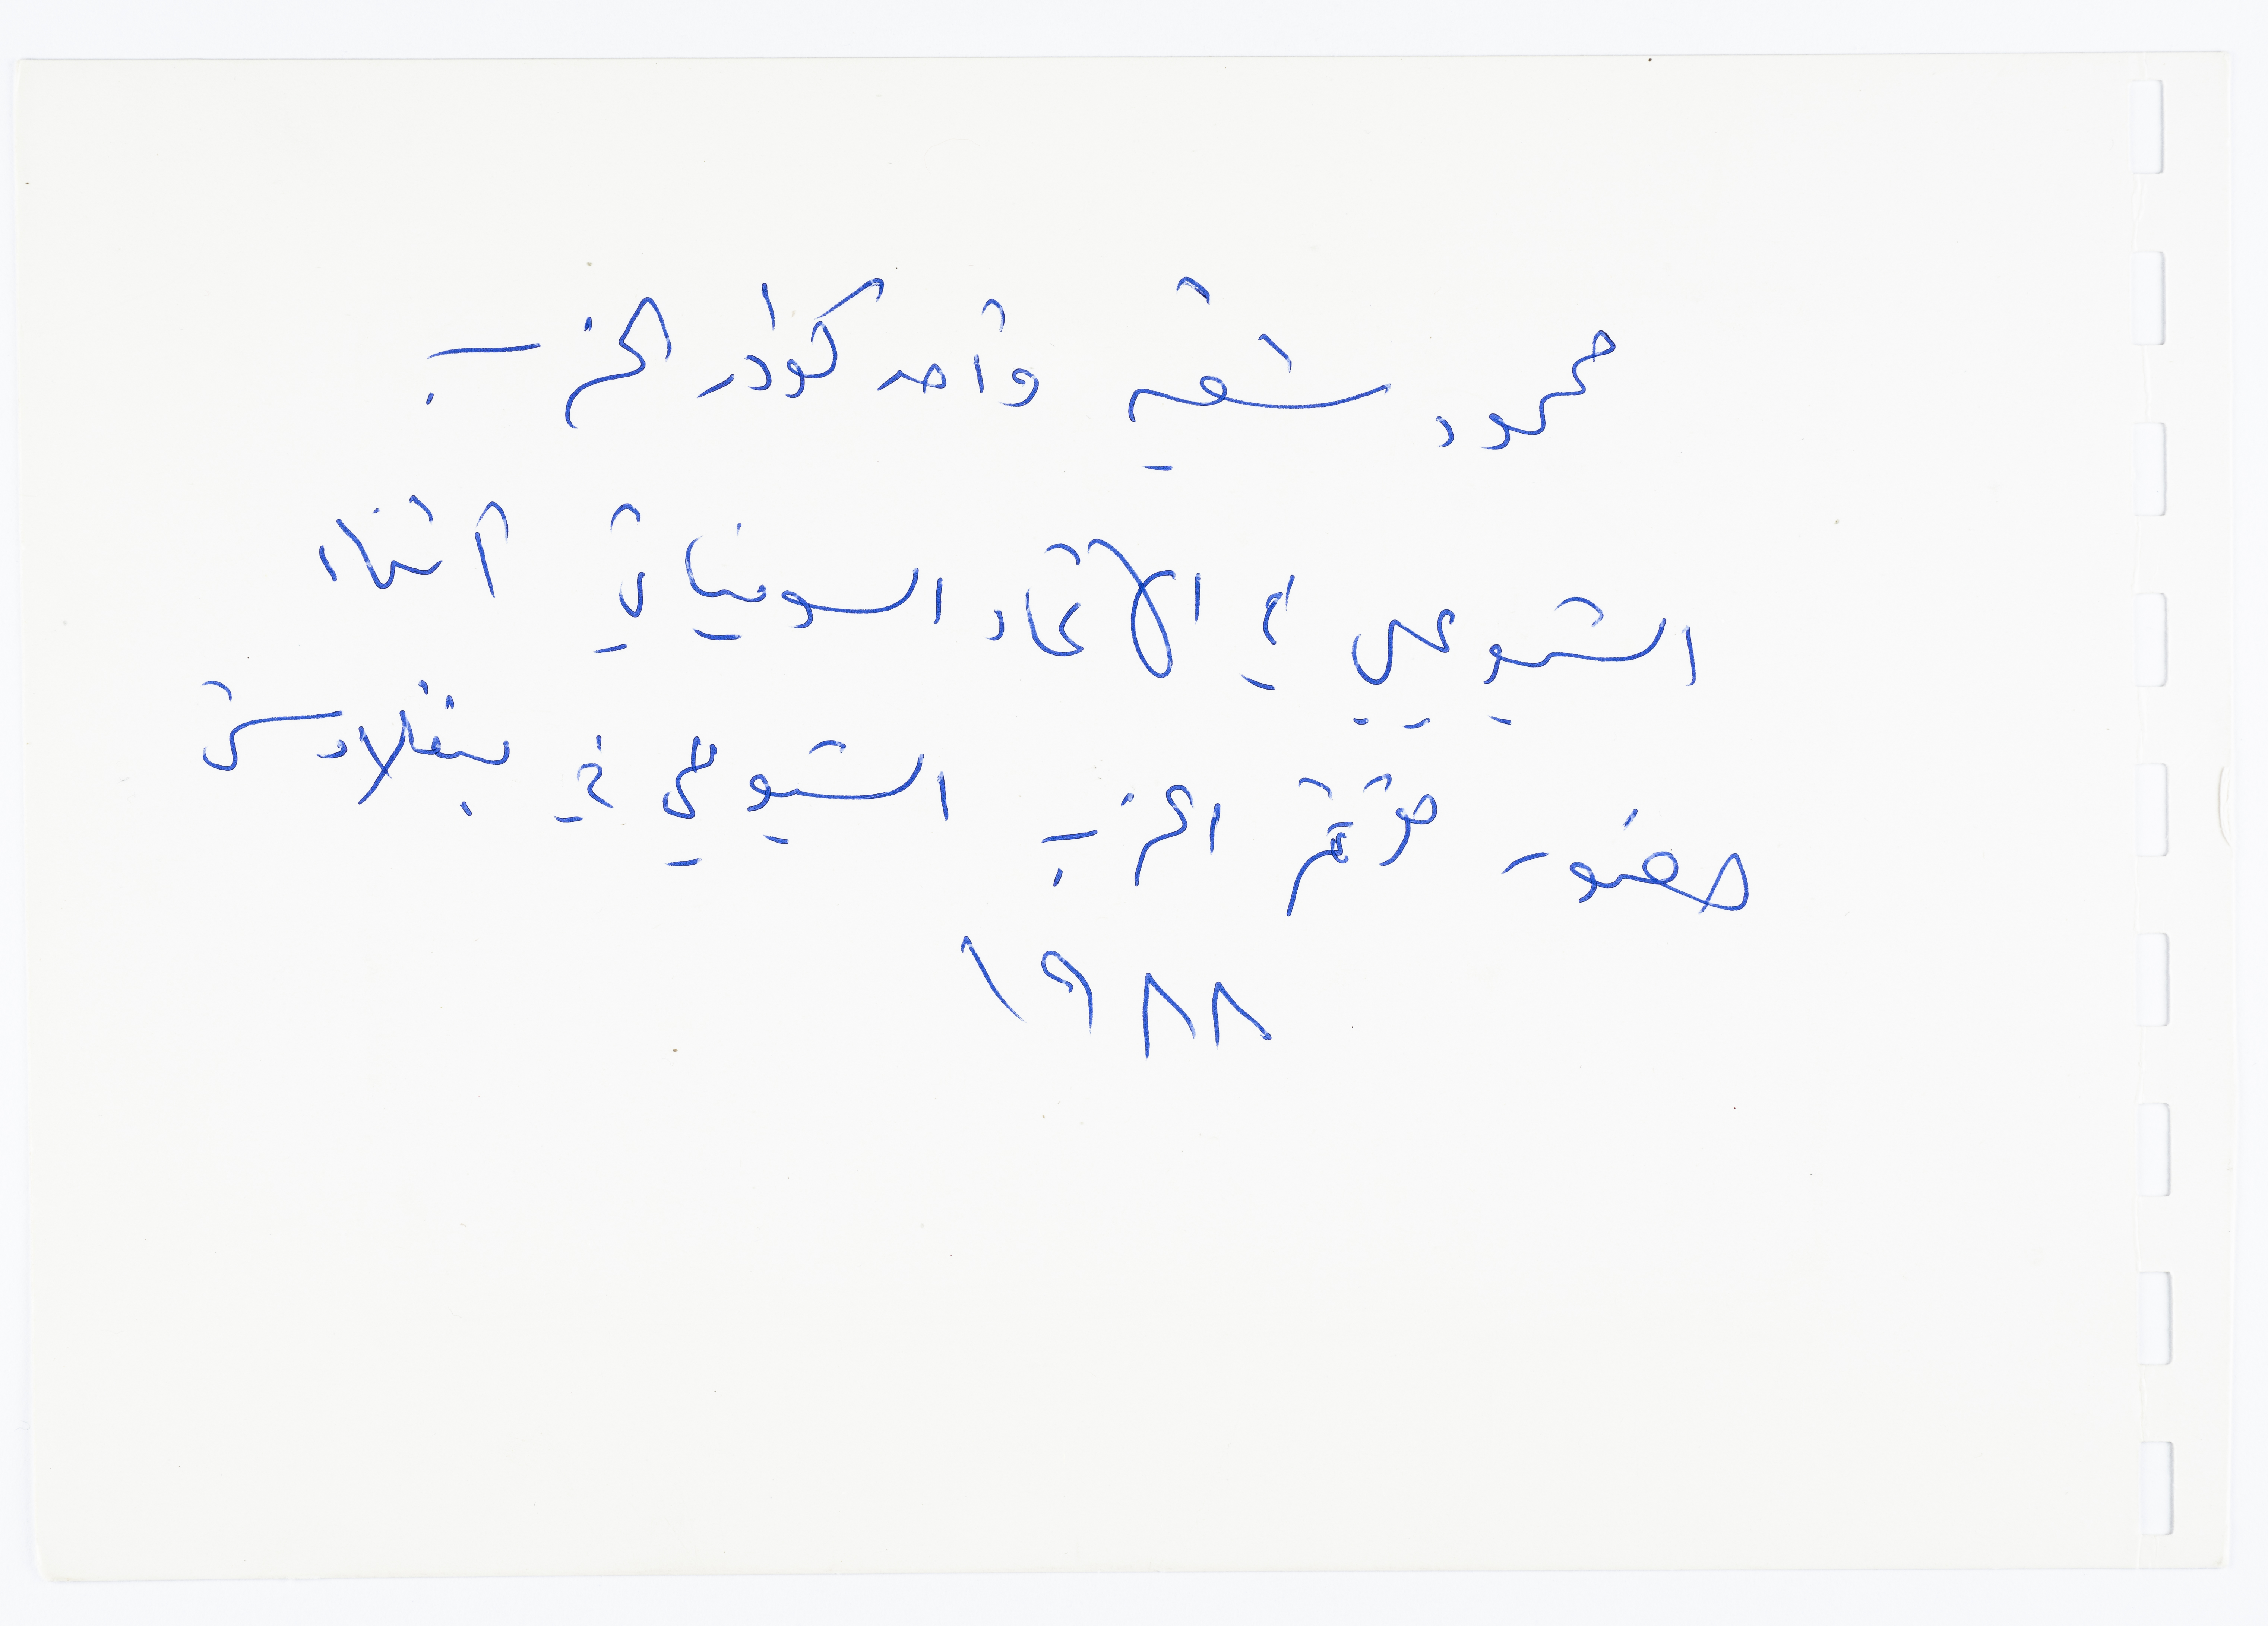 محمود شقير وأحد كوادر الحزب
الشيوعي في الاتحاد السوفياتي أثناء
حضور مؤتمر الحزب الشيوعي في بنغلادش
١٩٨٨